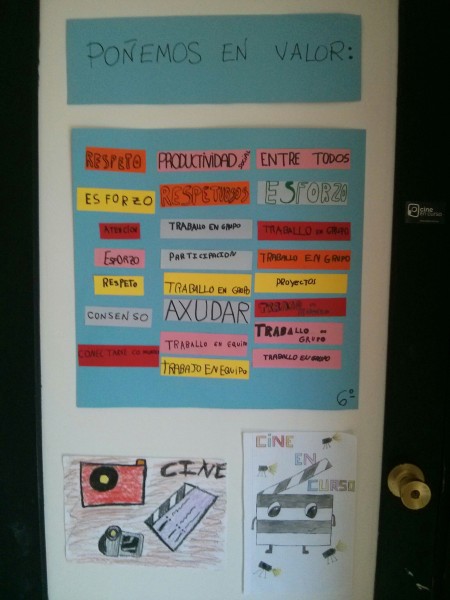 POÑEMOS EN VALOR:
RESPETO PRODUCTIVIDAD ENTRE TODOS
ESFORZO RESPETICIDOS ESFORZO
ATENCIÓN TRABALLO EN GRUPO TRABALLO EN GRUPO
ESFORZO PARTICIPACION TRABALLO EN GRUPO
RESPETO TRABALLO EN GRUPO PROYECTOS
CONSENSO AXUDAR
TRABALLO EN EQUIPO TRABALLO EN GRUPO
CONECTADOS TRABAJO EN EQUIPO TRABALLO EN GRUPO
6º
CINE
CINE
EN
CURSO
cine
en curso